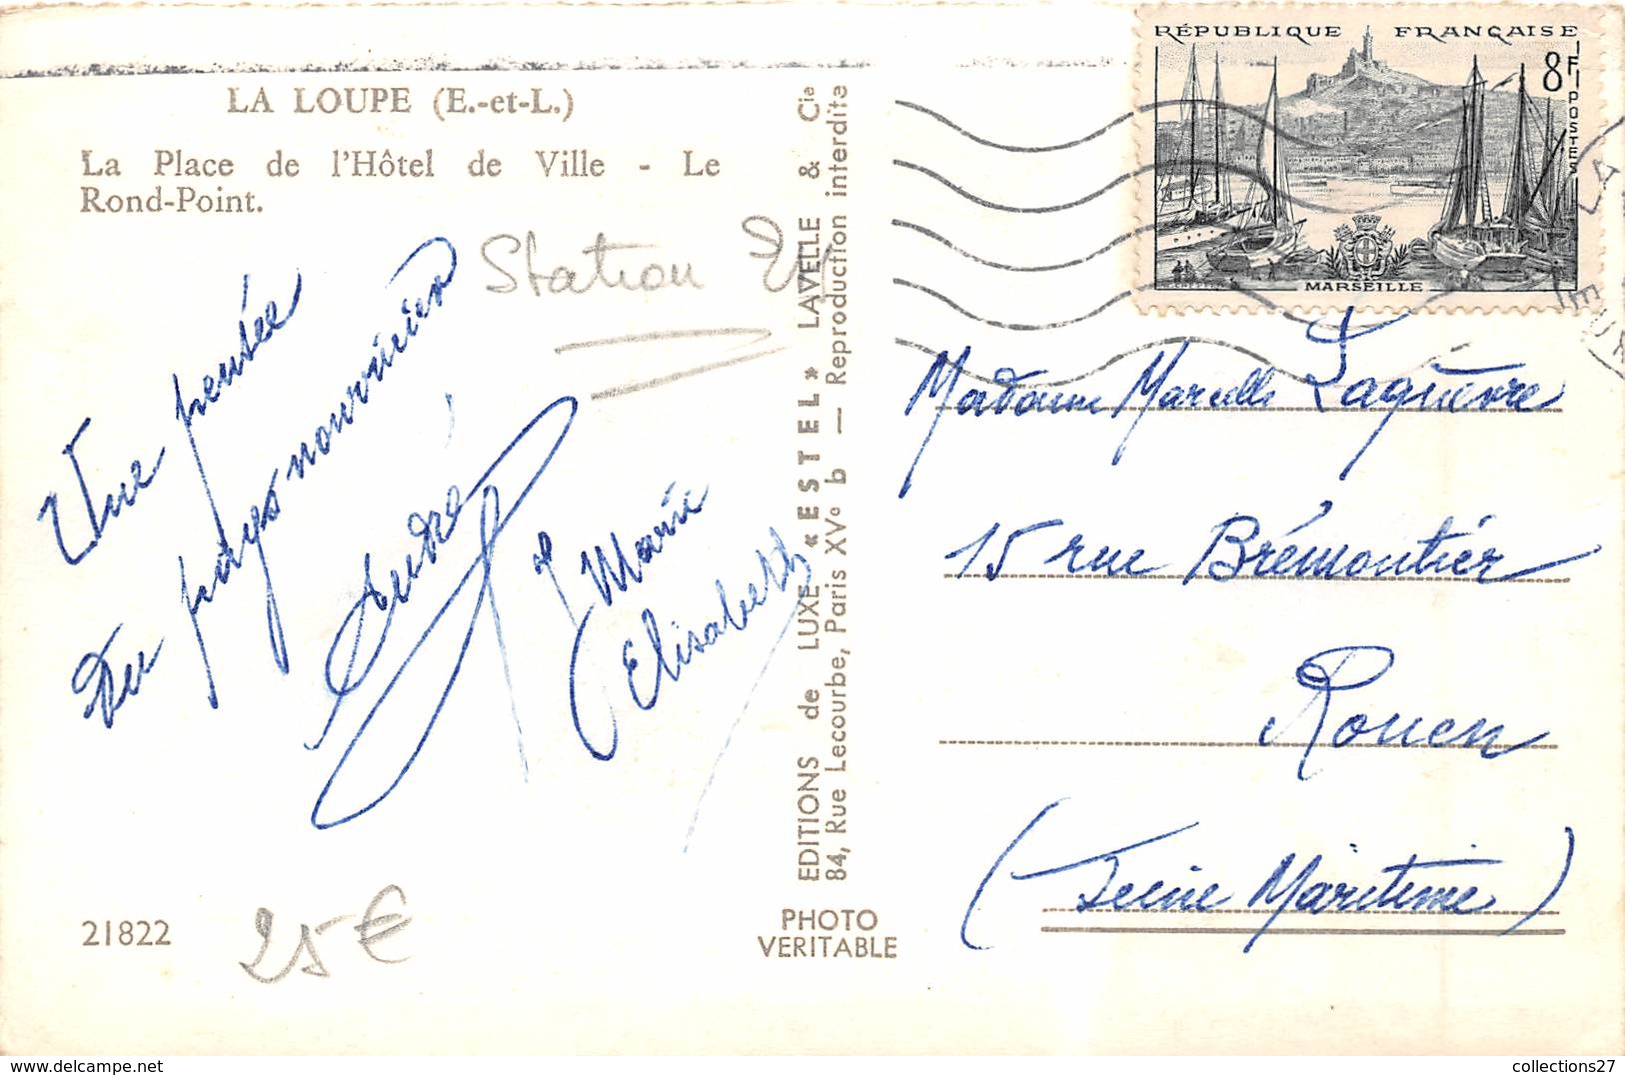 LA LOUPE (E.-et-L.)
La Place de l'Hôtel de Ville - Le
Rond-Point.
Station
Une pensée
du pays nourricier
André
et Marie
Elisabeth
21822
25 €
EDITIONS de LUXE « ESTEL » LAVELLE & Cie
84, Rue Lecourbe, Paris XVe b — Reproduction interdite
PHOTO
VERITABLE
RÉPUBLIQUE FRANÇAISE
8F
POSTES
MARSEILLE
Madame Marcelle Laquièvre
15 rue Brémontier
Rouen
(Seine Maritime)
collections27